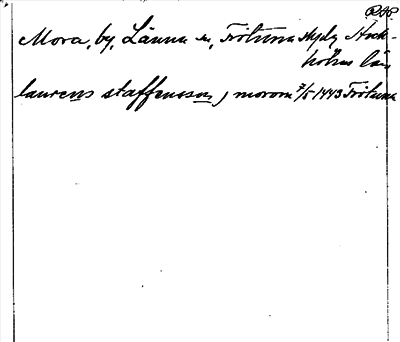 RAP
Mora, by, Länna sn, Frötuna skpl, Stock-
holms län
laurens staffensson, j morom 7/5 1443 Frötuna